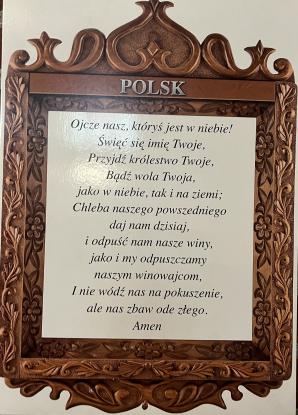 POLSK
Ojcze nasz, któryś jest w niebie!
Święć się imię Twoje,
Przyjdź królestwo Twoje,
Bądź wola Twoja,
jako w niebie, tak i na ziemi;
Chleba naszego powszedniego
daj nam dzisiaj,
i odpuść nam nasze winy,
jako i my odpuszczamy
naszym winowajcom,
I nie wódź nas na pokuszenie,
ale nas zbaw ode złego.
Amen